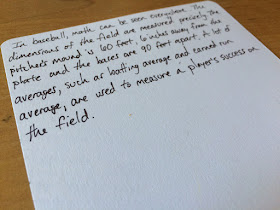 In baseball, math can be seen everywhere. The
dimensions of the field are measured precisely. The
pitcher's mound is 60 feet, 6 inches away from the
plate and the bases are 90 feet apart. A lot of
averages, such as batting average and earned run
average, are used to measure a player's success on
the field.